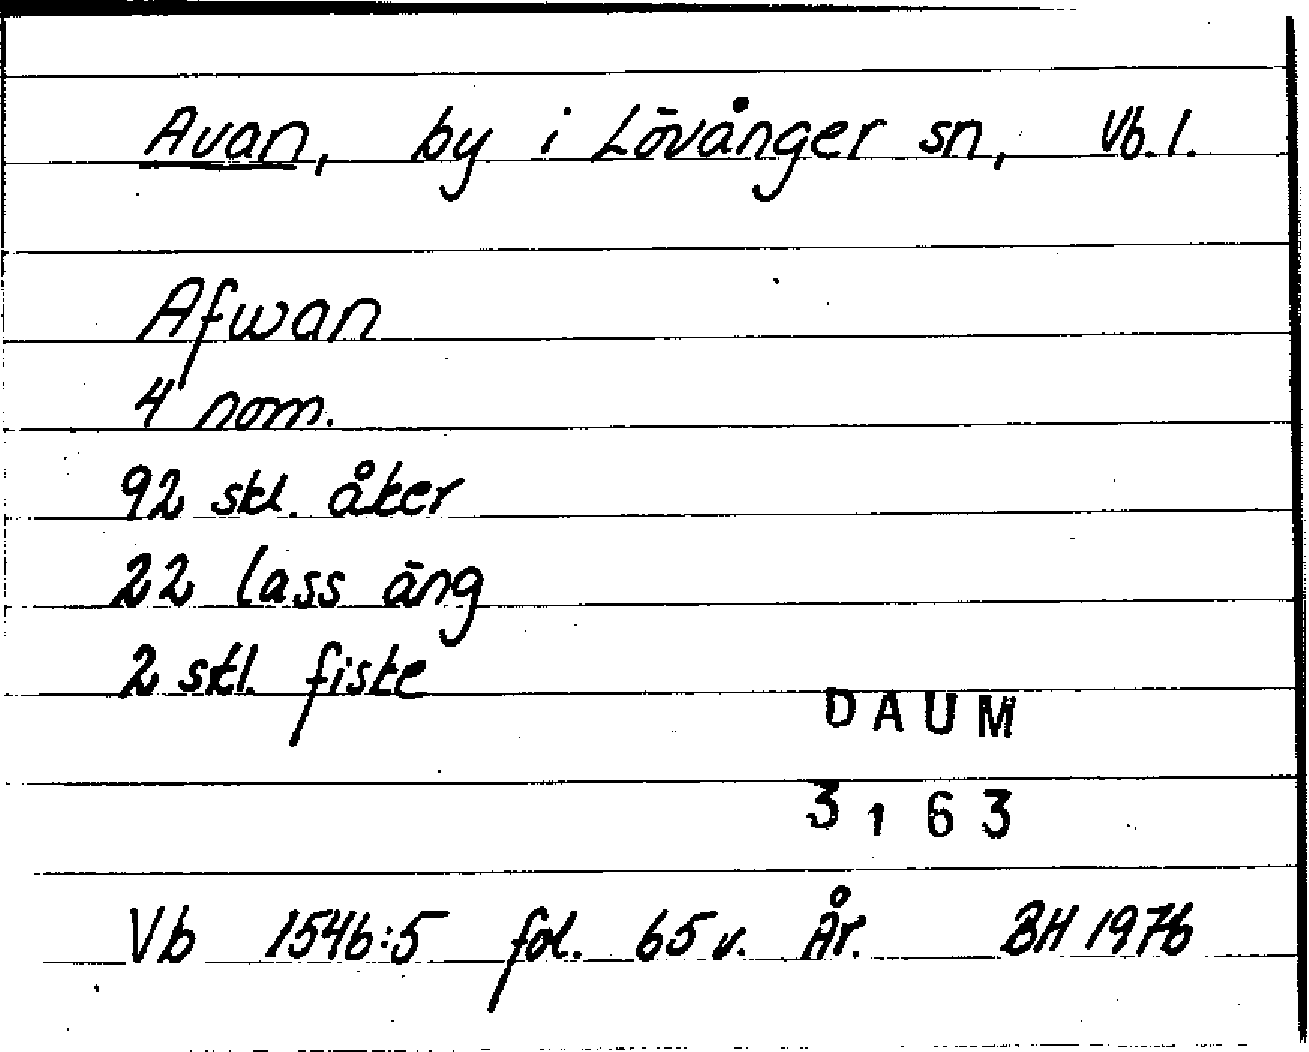 Avan, by i Lövånger sn, Vb. l.
Afwan
4 nom.
92 skl. åker
22 lass äng
2 skl. fiske
DAUM
3163
Vb 1546:5 fol. 65 v. År. BH 1976